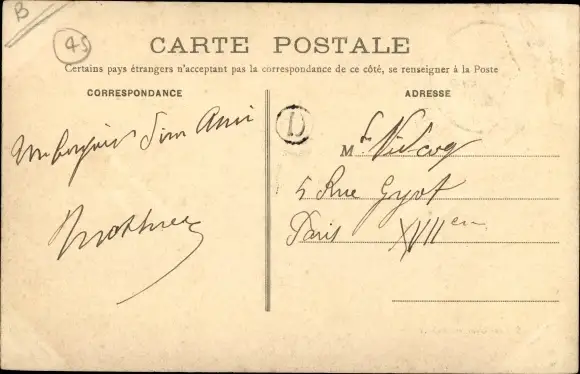 B
45
CARTE POSTALE
Certains pays étrangers n'acceptant pas la correspondance de ce côté, se renseigner à la Poste
CORRESPONDANCE
ADRESSE
D
Un bonjour d'un Ami
M
5 Rue Guyot
Paris XVII em